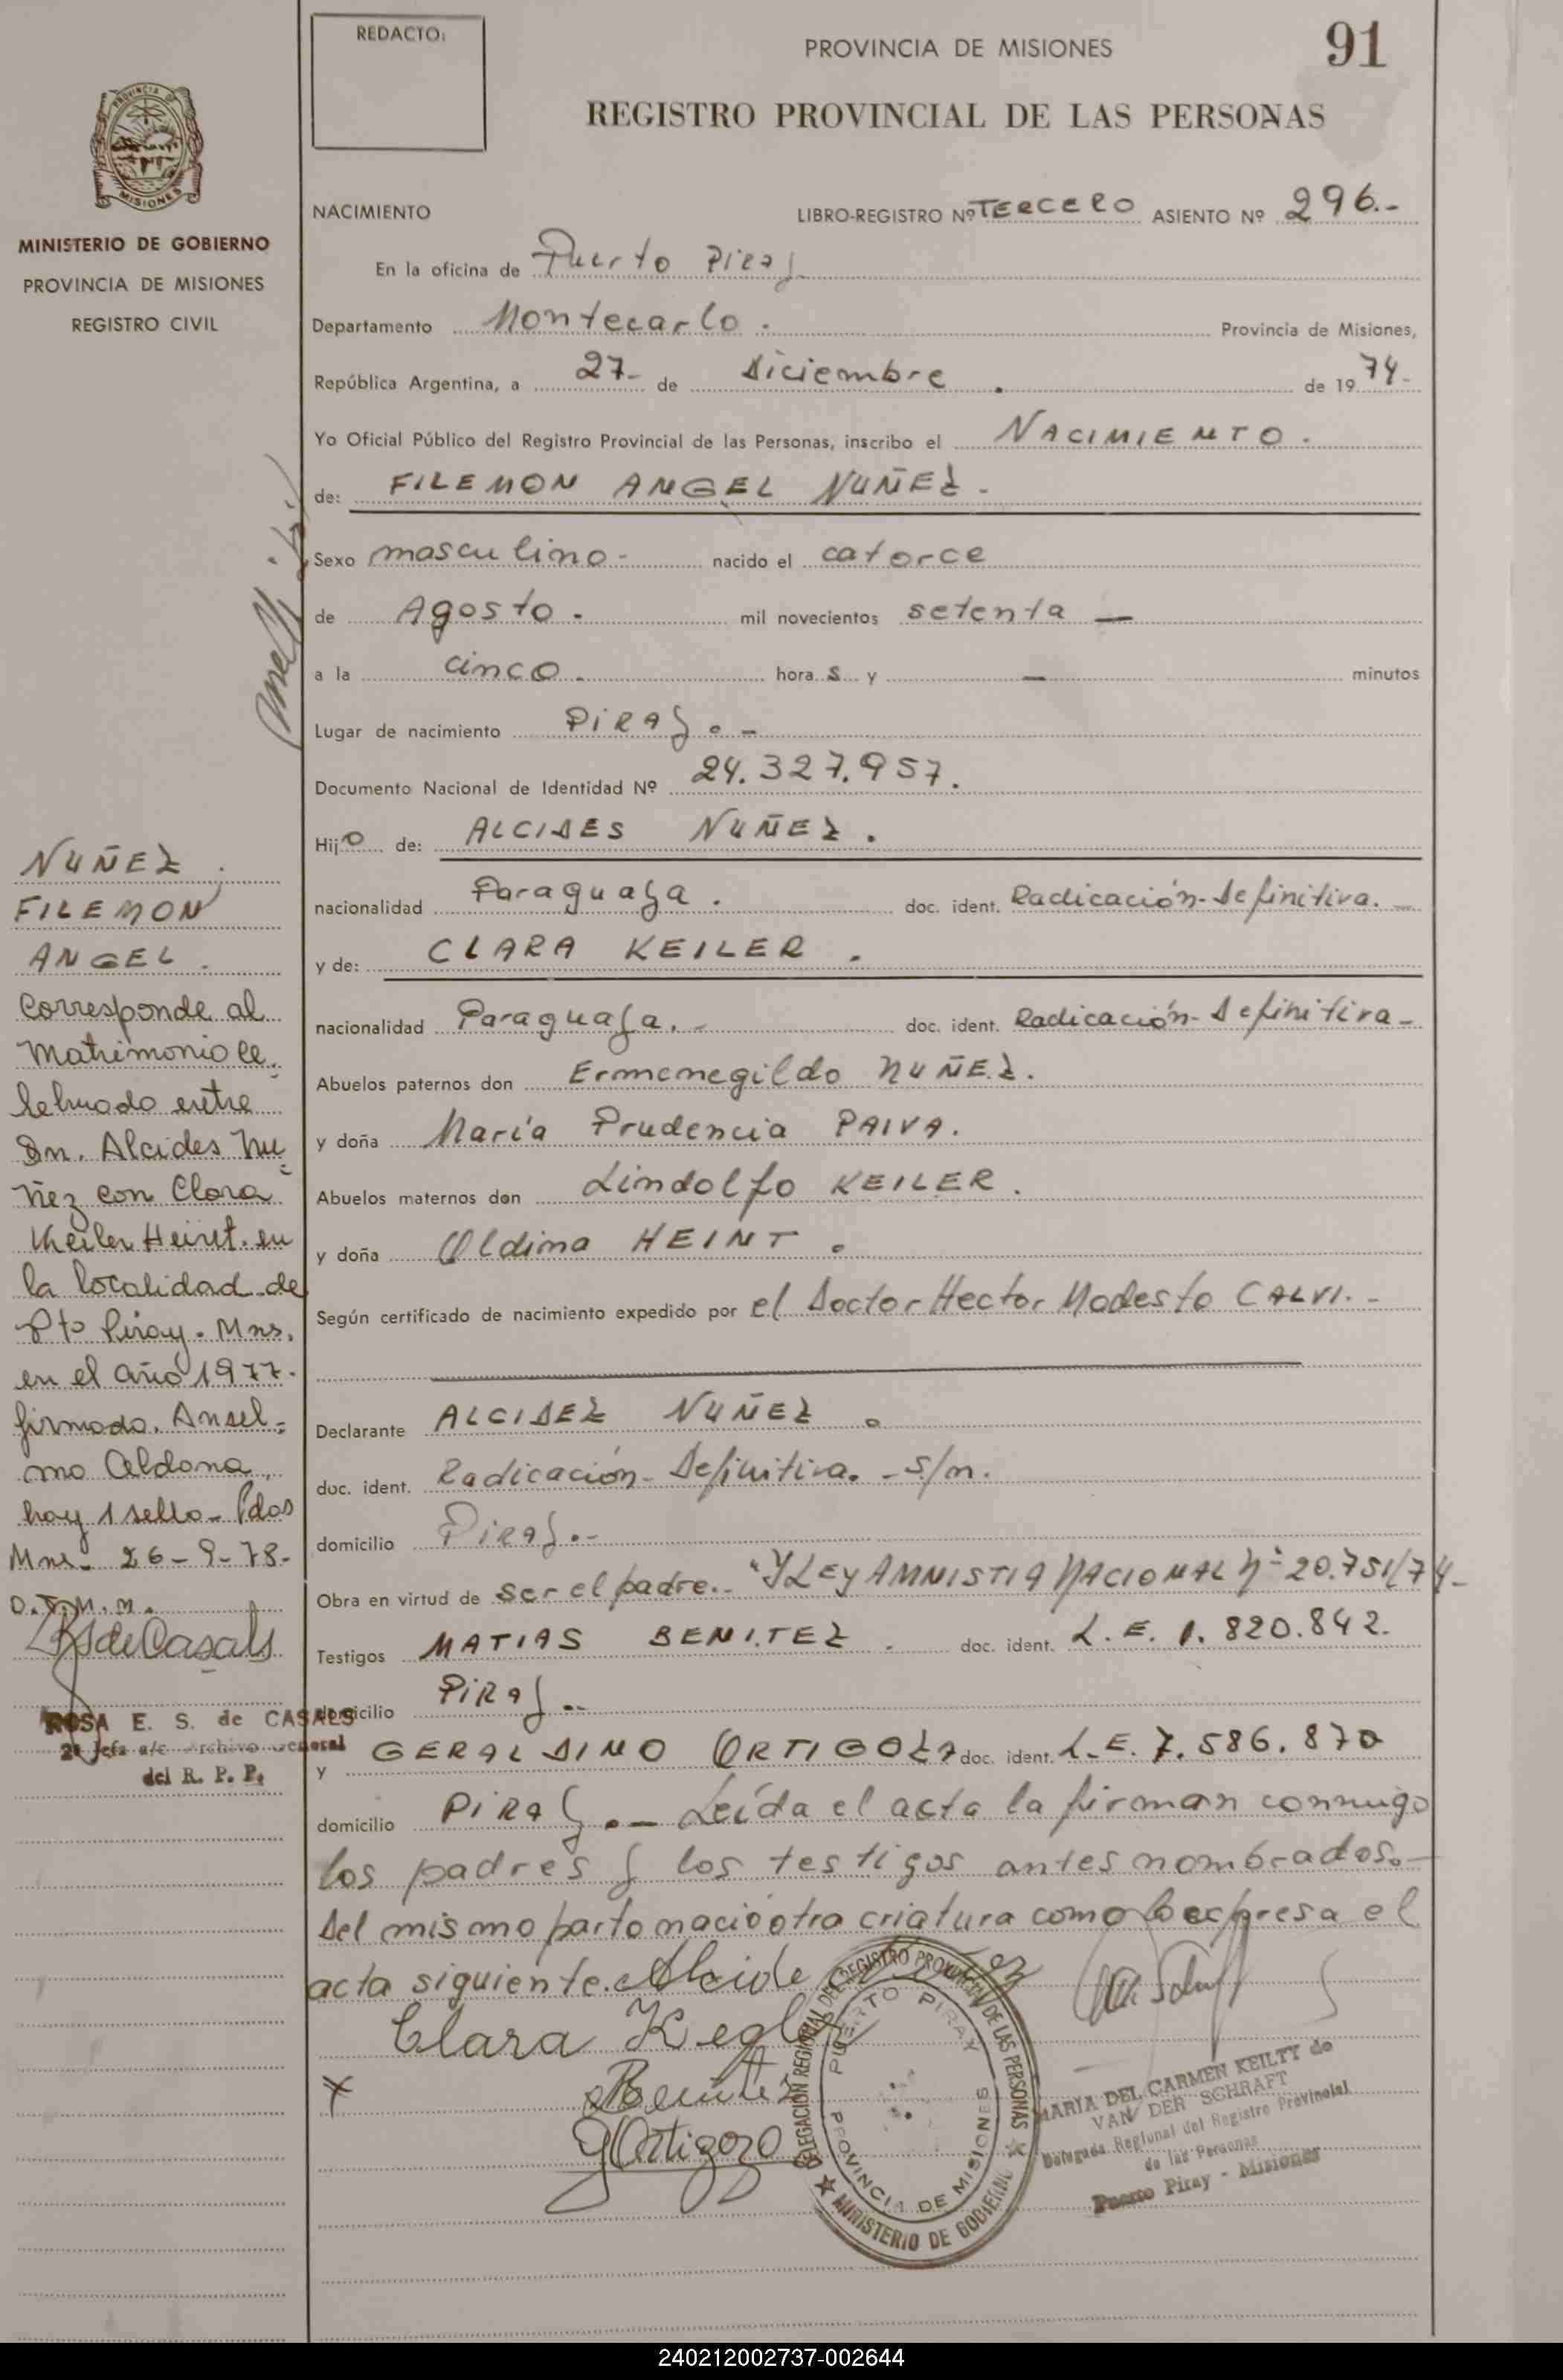 REDACTO:
PROVINCIA DE MISIONES
91
REGISTRO PROVINCIAL DE LAS PERSONAS
PROVINCIA DE
MISIONES
MINISTERIO DE GOBIERNO
PROVINCIA DE MISIONES
REGISTRO CIVIL
NACIMIENTO
LIBRO-REGISTRO Nº TERCERO ASIENTO Nº 296.-
En la oficina de Puerto Piray
Departamento Montecarlo. Provincia de Misiones,
República Argentina, a 27- de Diciembre . de 1974-
Yo Oficial Público del Registro Provincial de las Personas, inscribo el NACIMIENTO.
de: FILEMON ANGEL NUÑEZ.-
Sexo masculino- nacido el catorce
de Agosto. mil novecientos setenta —
a la cinco. hora s y — minutos
Lugar de nacimiento PIRAY.-
Documento Nacional de Identidad Nº 24.327.957.
Hijo de: ALCIDES NUÑEZ.
nacionalidad Paraguaya. doc. ident. Radicación-Definitiva.—
y de: CLARA KEILER.
nacionalidad Paraguaya.- doc. ident. Radicación-Definitiva-
Abuelos paternos don Ermenegildo NUÑEZ.
y doña María Prudencia PAIVA.
Abuelos maternos don Lindolfo KEILER.
y doña Oldima HEINT.
Según certificado de nacimiento expedido por el Doctor Hector Modesto CALVI.-
Declarante ALCIDEZ NUÑEZ.
doc. ident. Radicación-Definitiva.-s/n.
domicilio PIRAY.-
Obra en virtud de ser el padre.- "Y LEY AMNISTIA NACIONAL Nº 20.751/74-
Testigos MATIAS BENITEZ. doc. ident. L.E. 1.820.842.
domicilio PIRAY.-
y GERALDINO ORTIGOZA doc. ident. L.E. 7.586.870
domicilio PIRAY.— Leída el acta la firman conmigo
los padres y los testigos antes nombrados.—
Del mismo parto nació otra criatura como lo expresa el
acta siguiente. Alcide
Clara Kegler
x Benitez
G Ortigozo
DELEGACION REGIONAL DEL REGISTRO PROVINCIAL DE LAS PERSONAS
PUERTO PIRAY
PROVINCIA DE MISIONES
MINISTERIO DE GOBIERNO
MARIA DEL CARMEN KEILTY de
VAN DER SCHRAFT
Delegada Regional del Registro Provincial
de las Personas
Puerto Piray - Misiones
NUÑEZ.
FILEMON
ANGEL.
Corresponde al
Matrimonio ce-
lebrado entre
Dn. Alcides Nu-
ñez con Clara
Keiler Heint. en
la localidad de
Pto Piray. Mns.
en el año 1977.
firmado. Ansel-
mo Aldona
hay 1 sello- Pdas
Mns- 26-9-78-
D.T.M.M.
RSdeCasals
ROSA E. S. de CASALS
2ª Jefa a/c Archivo General
del R. P. P.
240212002737-002644